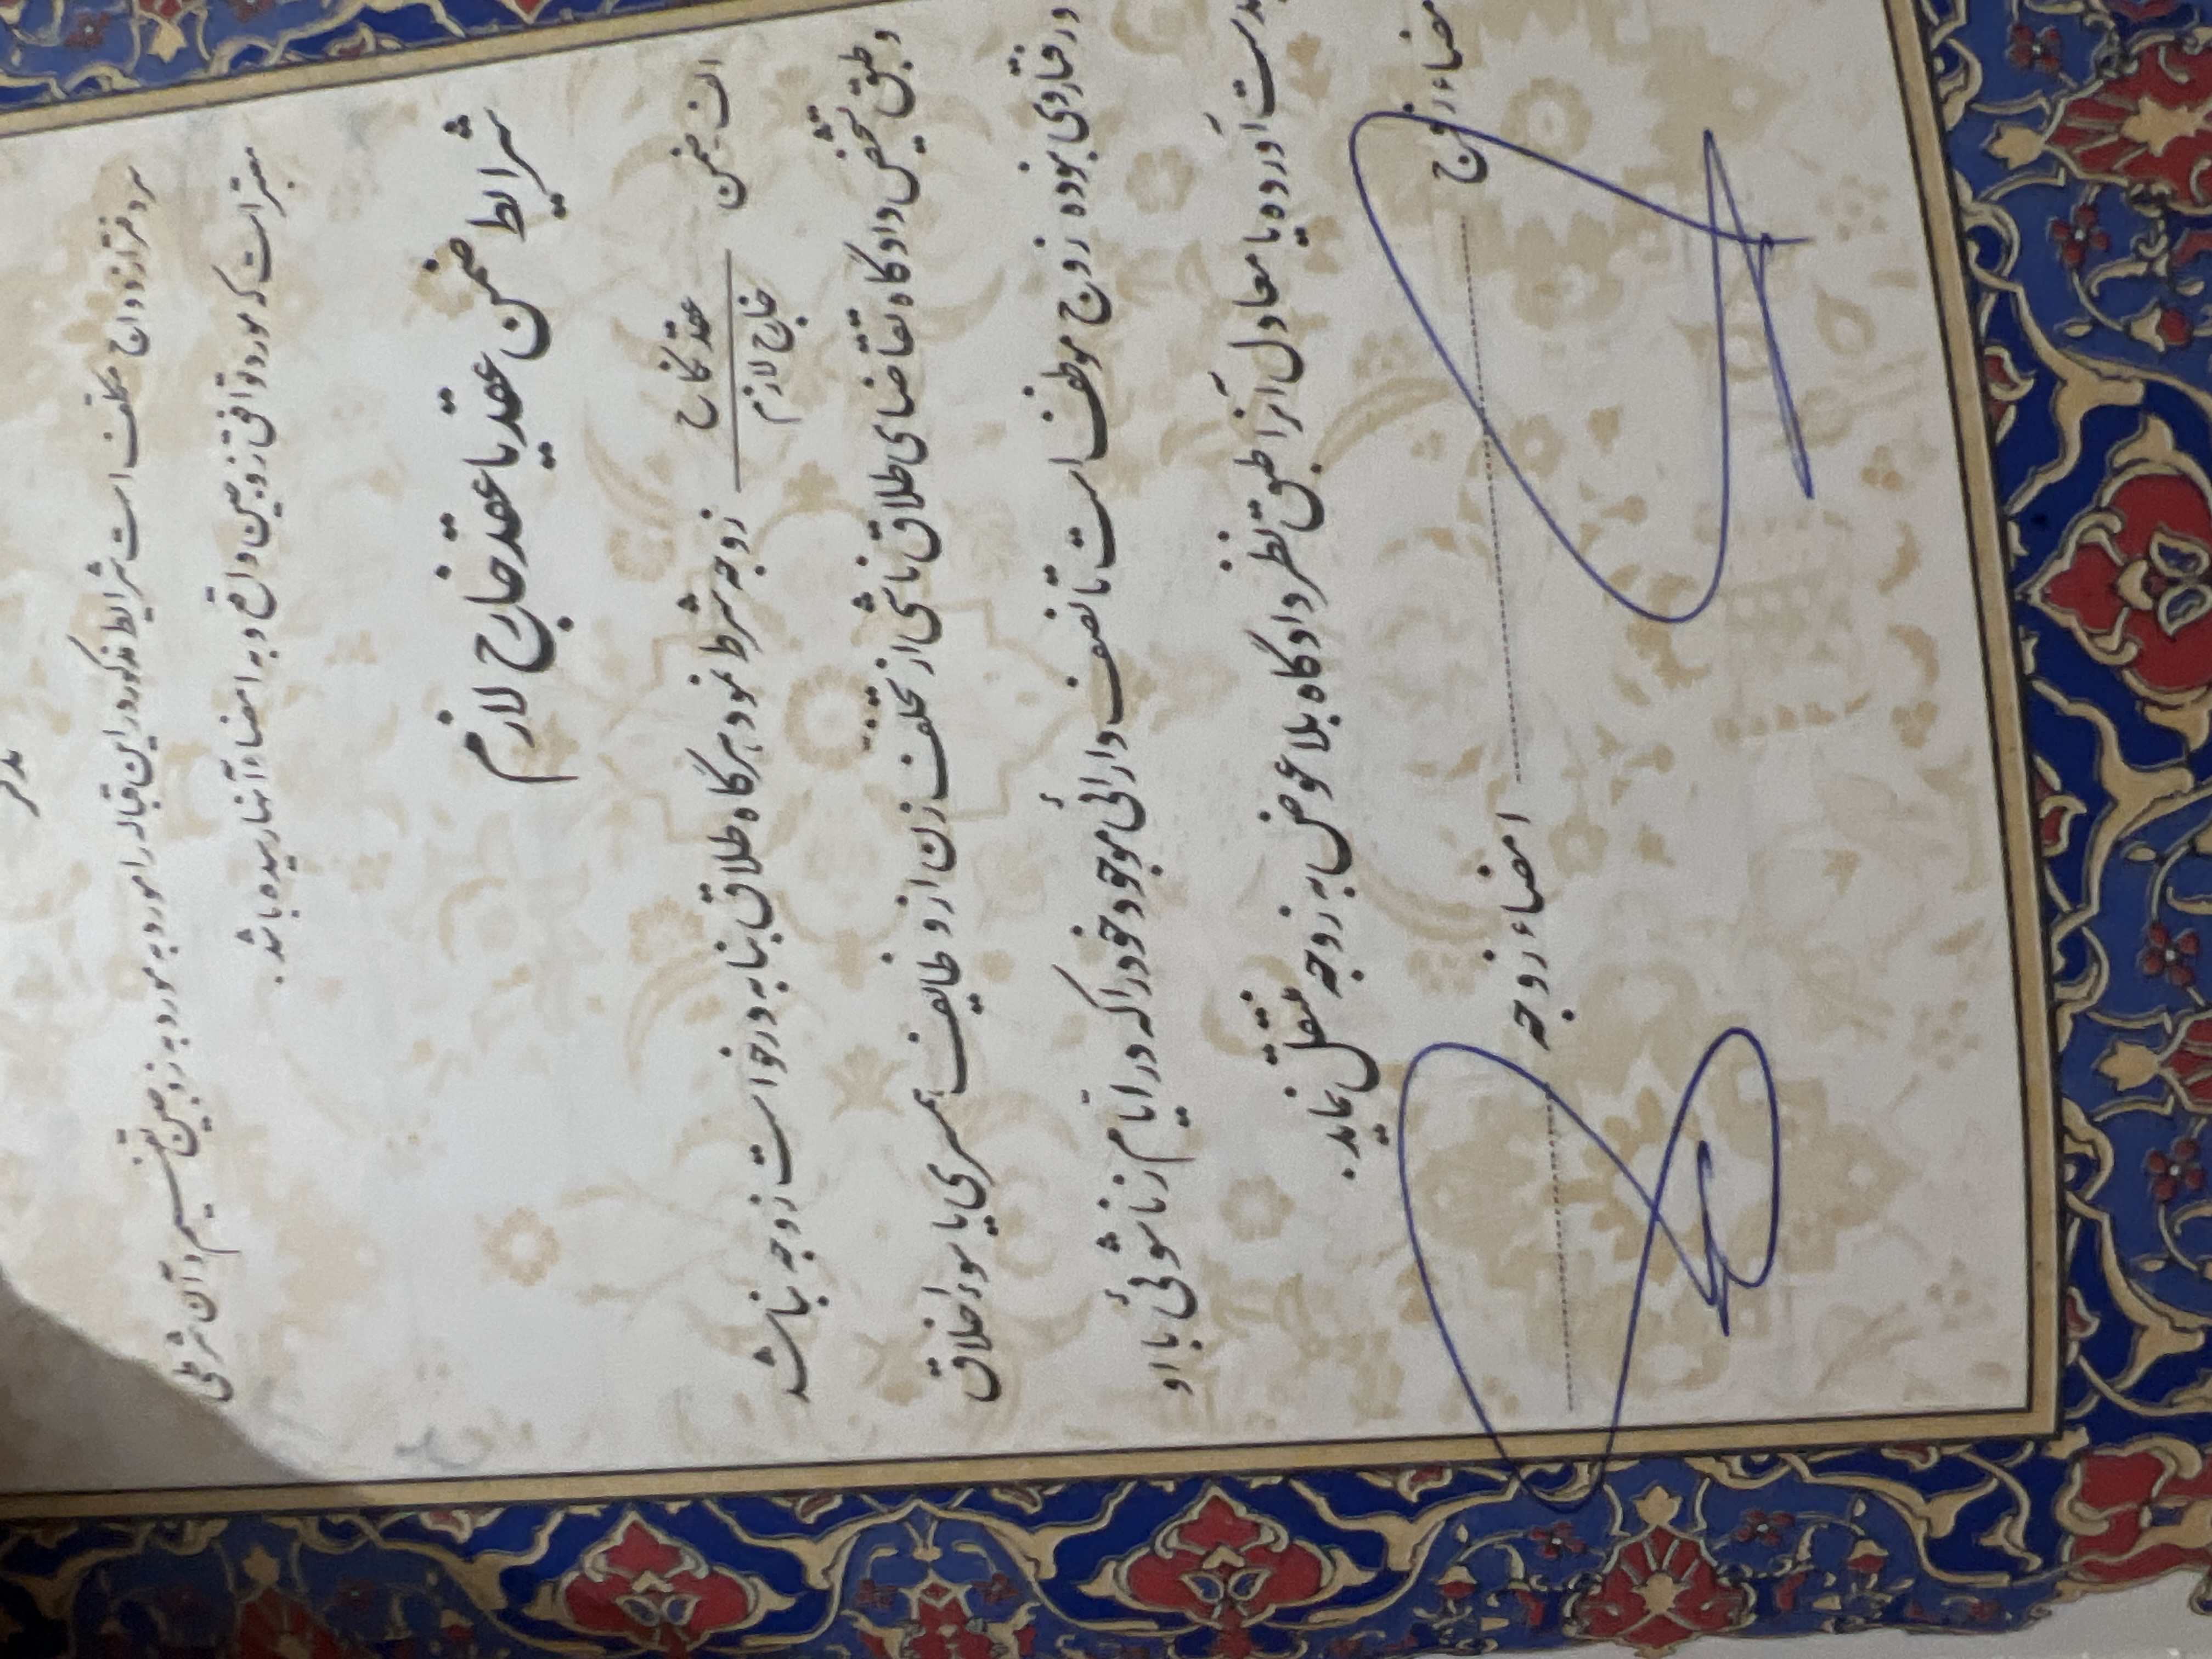 تذکر
سردفتر ازدواج مکلف است شرایط مذکور در این قباله را مورد به مورد به زوجین تفهیم و آن شرطی
معتبر است که مورد توافق زوجین واقع و به امضاء آنها رسیده باشد.
شرایط ضمن عقد یا عقد خارج لازم
الف ـ ضمن عقد نکاح / خارج لازم زوجه شرط نمود هرگاه طلاق بنا به درخواست زوجه نباشد
و طبق تشخیص دادگاه تقاضای طلاق ناشی از تخلف زن از وظایف همسری یا سوء اخلاق
و رفتار وی نبوده زوج موظف است تا نصف دارائی موجود خود را که در ایام زناشوئی با او
بدست آورده یا معادل آنرا طبق نظر دادگاه بلاعوض به زوجه منتقل نماید.
امضاء زوج
امضاء زوجه